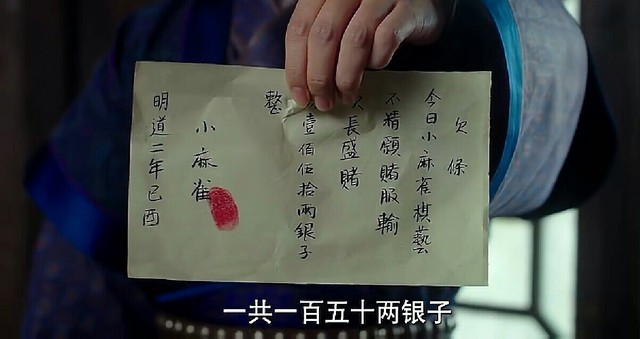 欠條
今日小麻雀棋藝
不精願賭服輸
長盛賭
壹佰伍拾兩銀子
整
小麻雀
明道二年己酉
一共一百五十两银子